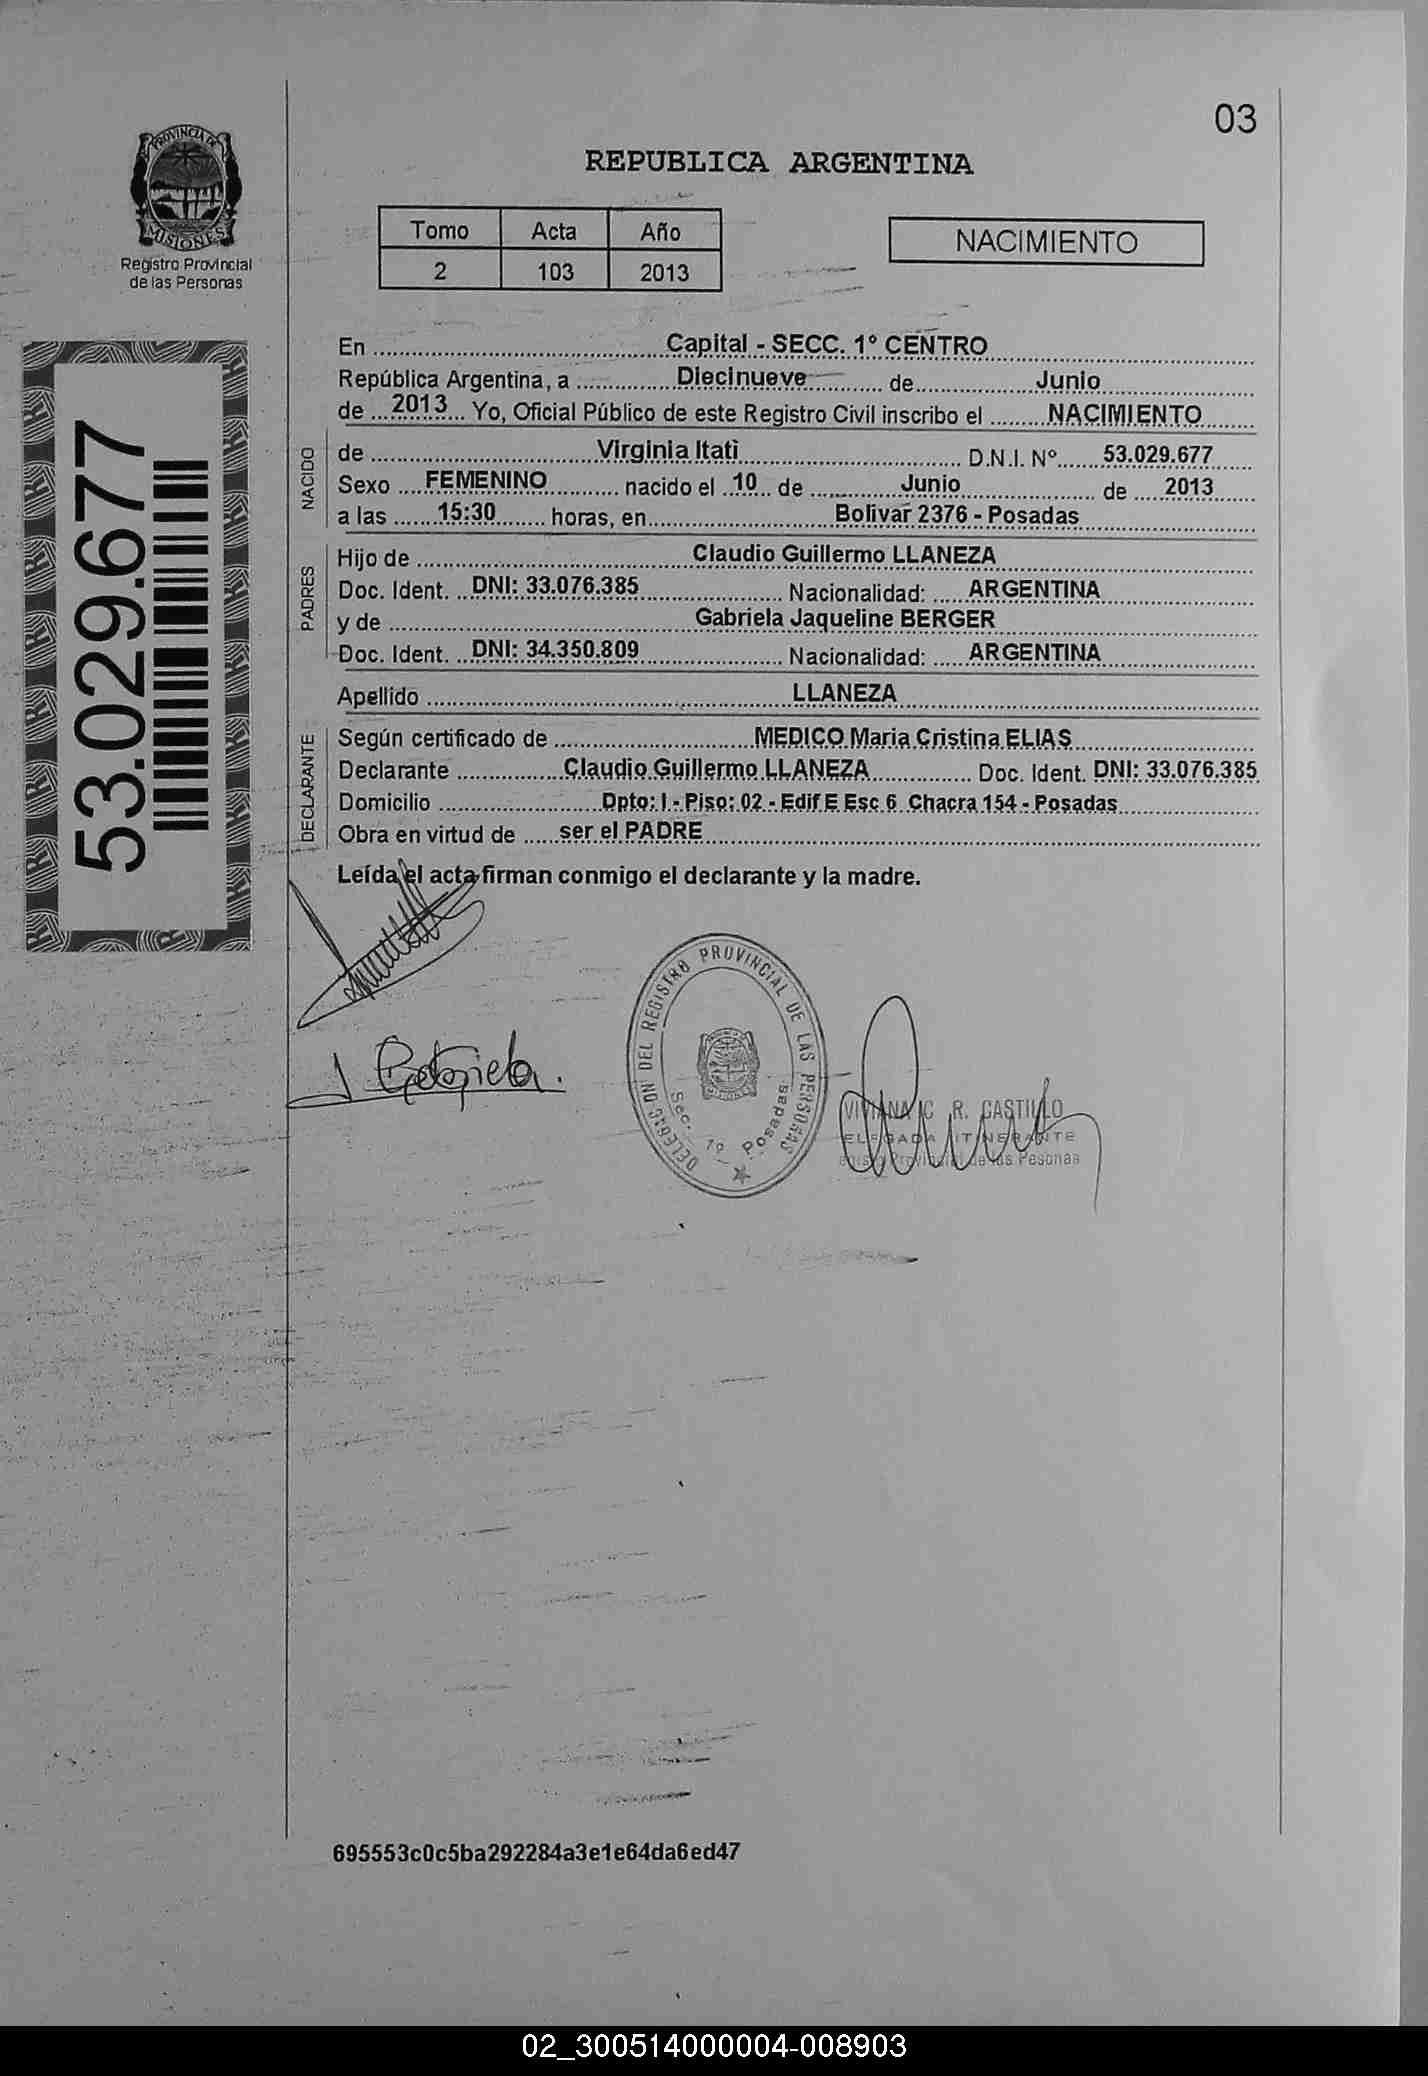 03
PROVINCIA DE
MISIONES
Registro Provincial
de las Personas
REPUBLICA ARGENTINA
Tomo Acta Año
2 103 2013
NACIMIENTO
53.029.677
En ........ Capital - SECC. 1º CENTRO ........
República Argentina, a ........ Diecinueve ........ de ........ Junio ........
de ... 2013 ... Yo, Oficial Público de este Registro Civil inscribo el ........ NACIMIENTO ........
NACIDO
de ........ Virginia Itatì ........ D.N.I. Nº ........ 53.029.677 ........
Sexo .... FEMENINO ........ nacido el .. 10 .. de ........ Junio ........ de .... 2013 ........
a las ...... 15:30 ...... horas, en ........ Bolivar 2376 - Posadas ........
PADRES
Hijo de ........ Claudio Guillermo LLANEZA ........
Doc. Ident. .. DNI: 33.076.385 ........ Nacionalidad: ..... ARGENTINA ........
y de ........ Gabriela Jaqueline BERGER ........
Doc. Ident. .. DNI: 34.350.809 ........ Nacionalidad: ..... ARGENTINA ........
Apellido ........ LLANEZA ........
DECLARANTE
Según certificado de ........ MEDICO Maria Cristina ELIAS ........
Declarante ........ Claudio Guillermo LLANEZA ........ Doc. Ident. DNI: 33.076.385
Domicilio ........ Dpto: I - Piso: 02 - Edif E Esc 6 Chacra 154 - Posadas ........
Obra en virtud de ..... ser el PADRE ........
Leída el acta firman conmigo el declarante y la madre.
Gabriela.
DELEGACION DEL REGISTRO PROVINCIAL DE LAS PERSONAS
Sec. 1º Posadas
VIVIANA C. R. CASTILLO
ELEGADA ITINERANTE
Provincial de las Pesonas
695553c0c5ba292284a3e1e64da6ed47
02_300514000004-008903